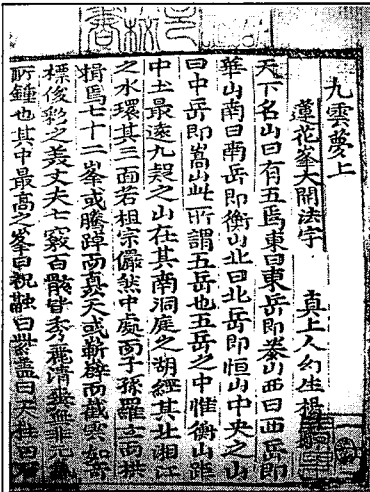 九雲夢上
蓮花峯大開法宇　真上人幻生楊
天下名山曰有五焉東曰東岳即泰山西曰西岳即
華山南曰南岳即衡山北曰北岳即恒山中央之山
曰中岳即嵩山此所謂五岳也五岳之中惟衡山距
中土最遠九疑之山在其南洞庭之湖經其北湘江
之水環其三面若祖宗儼然中處而子孫羅立而拱
揖焉七十二峯或騰踔而矗天或嶄擘而截雲如奇
標俊彩之美丈夫七竅百骸皆秀麗清爽無非元氣
所鍾也其中最高之峯曰祝融曰紫盖曰天柱曰